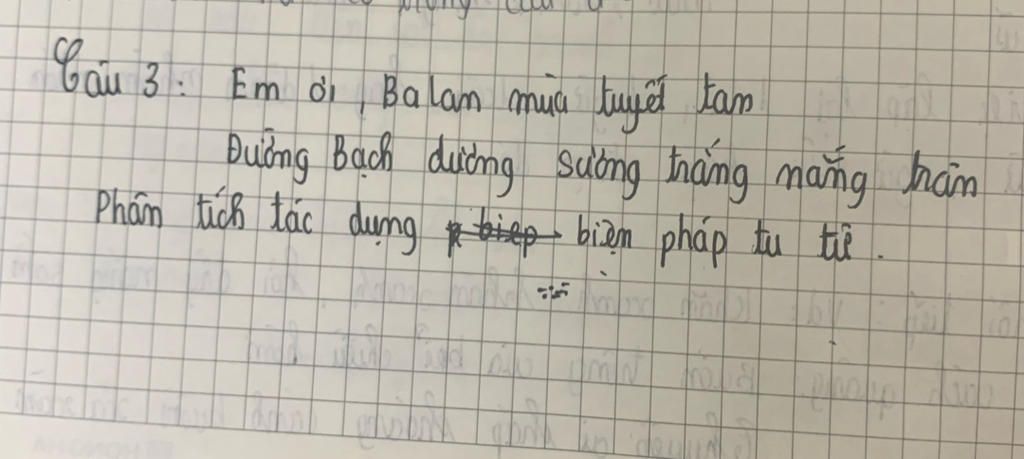 Câu 3: Em ơi, Ba lan mùa tuyết tan
Đường Bạch dương sương trắng nắng tràn
Phân tích tác dụng biện pháp tu từ.